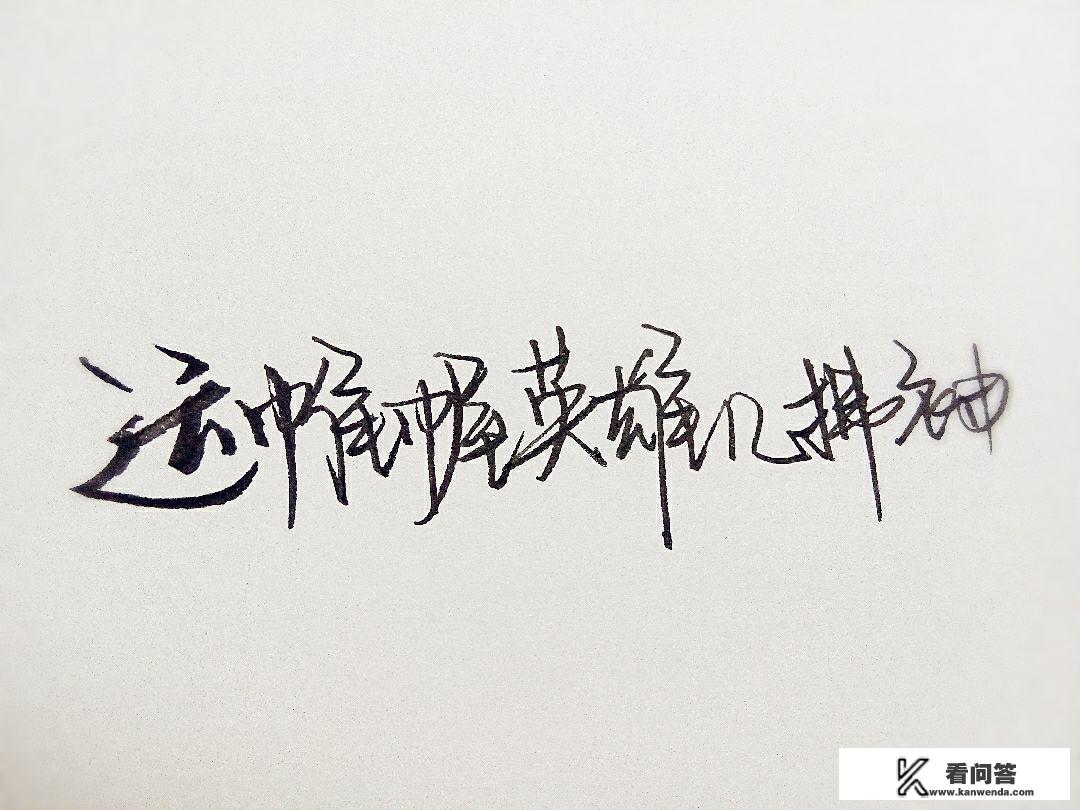 运帷幄英雄几拂袖
看问答
www.kanwenda.com